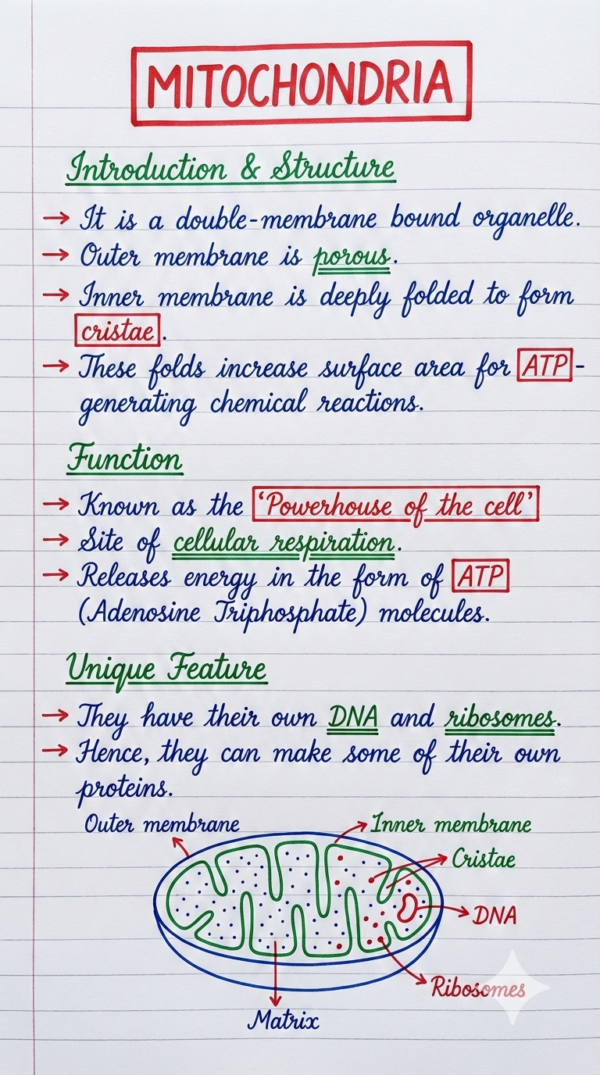 MITOCHONDRIA
Introduction & Structure
→ It is a double-membrane bound organelle.
→ Outer membrane is porous.
→ Inner membrane is deeply folded to form
cristae.
→ These folds increase surface area for ATP-
generating chemical reactions.
Function
→ Known as the 'Powerhouse of the cell'
→ Site of cellular respiration.
→ Releases energy in the form of ATP
(Adenosine Triphosphate) molecules.
Unique Feature
→ They have their own DNA and ribosomes.
→ Hence, they can make some of their own
proteins.
Outer membrane
Inner membrane
Cristae
DNA
Ribosomes
Matrix